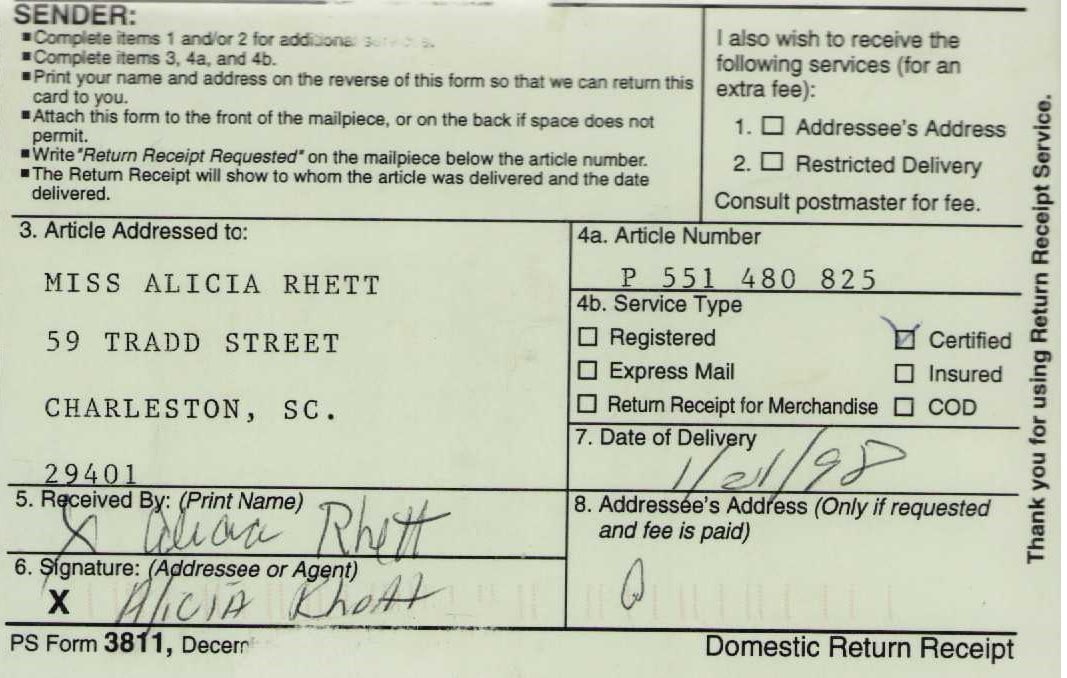 SENDER:
■Complete items 1 and/or 2 for additional services.
■Complete items 3, 4a, and 4b.
■Print your name and address on the reverse of this form so that we can return this
card to you.
■Attach this form to the front of the mailpiece, or on the back if space does not
permit.
■Write "Return Receipt Requested" on the mailpiece below the article number.
■The Return Receipt will show to whom the article was delivered and the date
delivered.
I also wish to receive the
following services (for an
extra fee):
1. ☐ Addressee's Address
2. ☐ Restricted Delivery
Consult postmaster for fee.
3. Article Addressed to:
MISS ALICIA RHETT
59 TRADD STREET
CHARLESTON, SC.
29401
4a. Article Number
P 551 480 825
4b. Service Type
☐ Registered ☑ Certified
☐ Express Mail ☐ Insured
☐ Return Receipt for Merchandise ☐ COD
7. Date of Delivery
1/21/98
5. Received By: (Print Name)
X Alicia Rhett
6. Signature: (Addressee or Agent)
X Alicia Rhett
8. Addressee's Address (Only if requested
and fee is paid)
PS Form 3811, Decem
Domestic Return Receipt
Thank you for using Return Receipt Service.